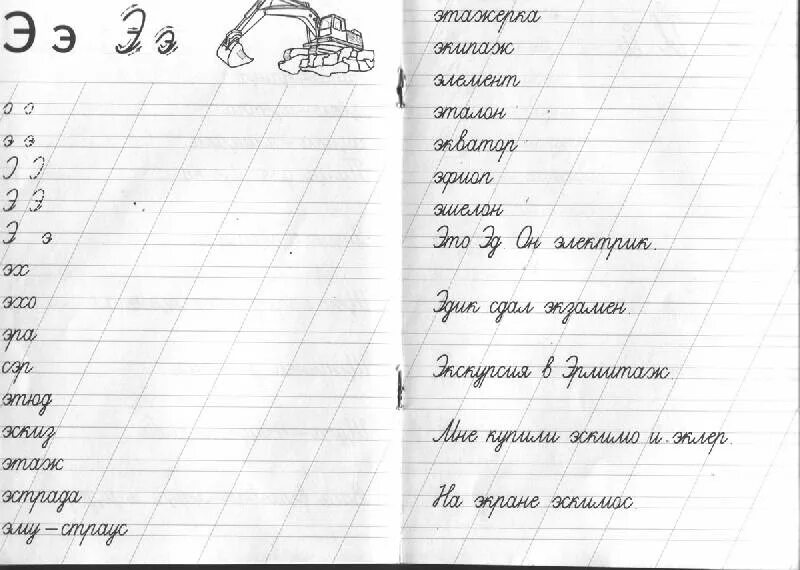 Э э Э э
о о
э э
Э Э
Э Э
Э э
эх
эхо
эра
сэр
этюд
эскиз
этаж
эстрада
эму – страус
этажерка
экипаж
элемент
эталон
экватор
эфиоп
эшелон
Это Эд. Он электрик.
Эдик сдал экзамен.
Экскурсия в Эрмитаж.
Мне купили эскимо и эклер.
На экране эскимос